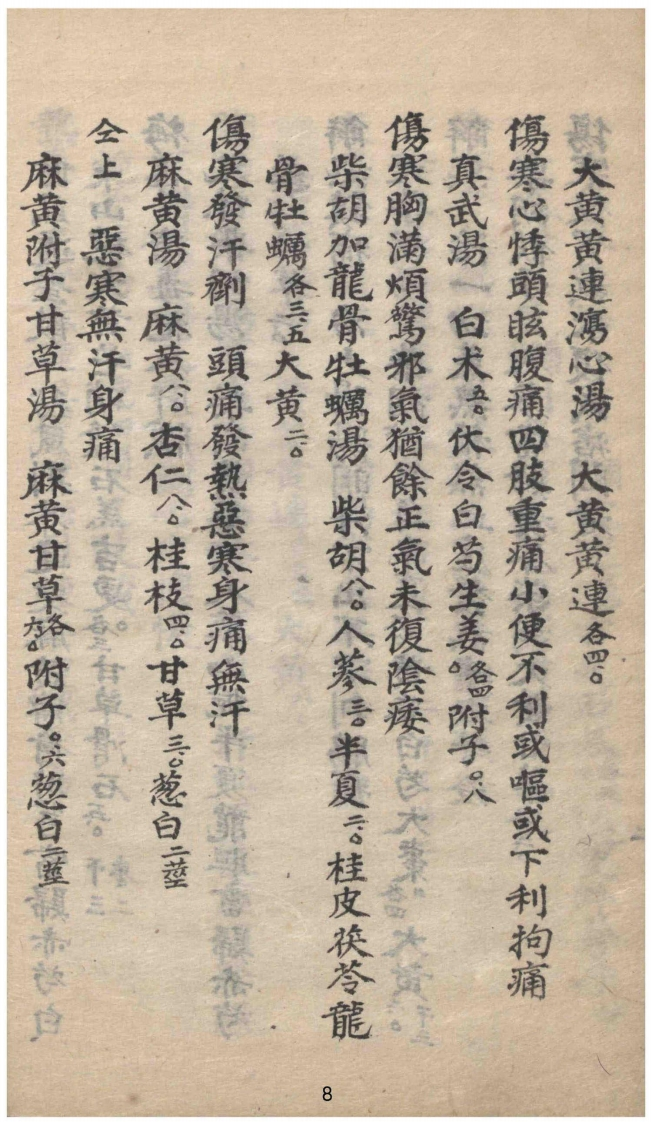 大黃黃連瀉心湯 大黃黃連各四.○
傷寒心悸頭眩腹痛四肢重痛小便不利或嘔或下利拘痛
真武湯 一 白朮五.○伏令白芍生姜。各四附子○.八
傷寒胸滿煩驚邪氣猶餘正氣未復陰痿
柴胡加龍骨牡蠣湯 柴胡八.○人蔘三.○半夏二.○桂皮茯苓龍
骨牡蠣各三.五大黃二.○
傷寒發汗劑 頭痛發熱惡寒身痛無汗
麻黃湯 麻黃八.○杏仁八.○桂枝四.○甘草三.○葱白二莖
仝上 惡寒無汗身痛
麻黃附子甘草湯 麻黃甘草各六.○附子○.六葱白二莖
8